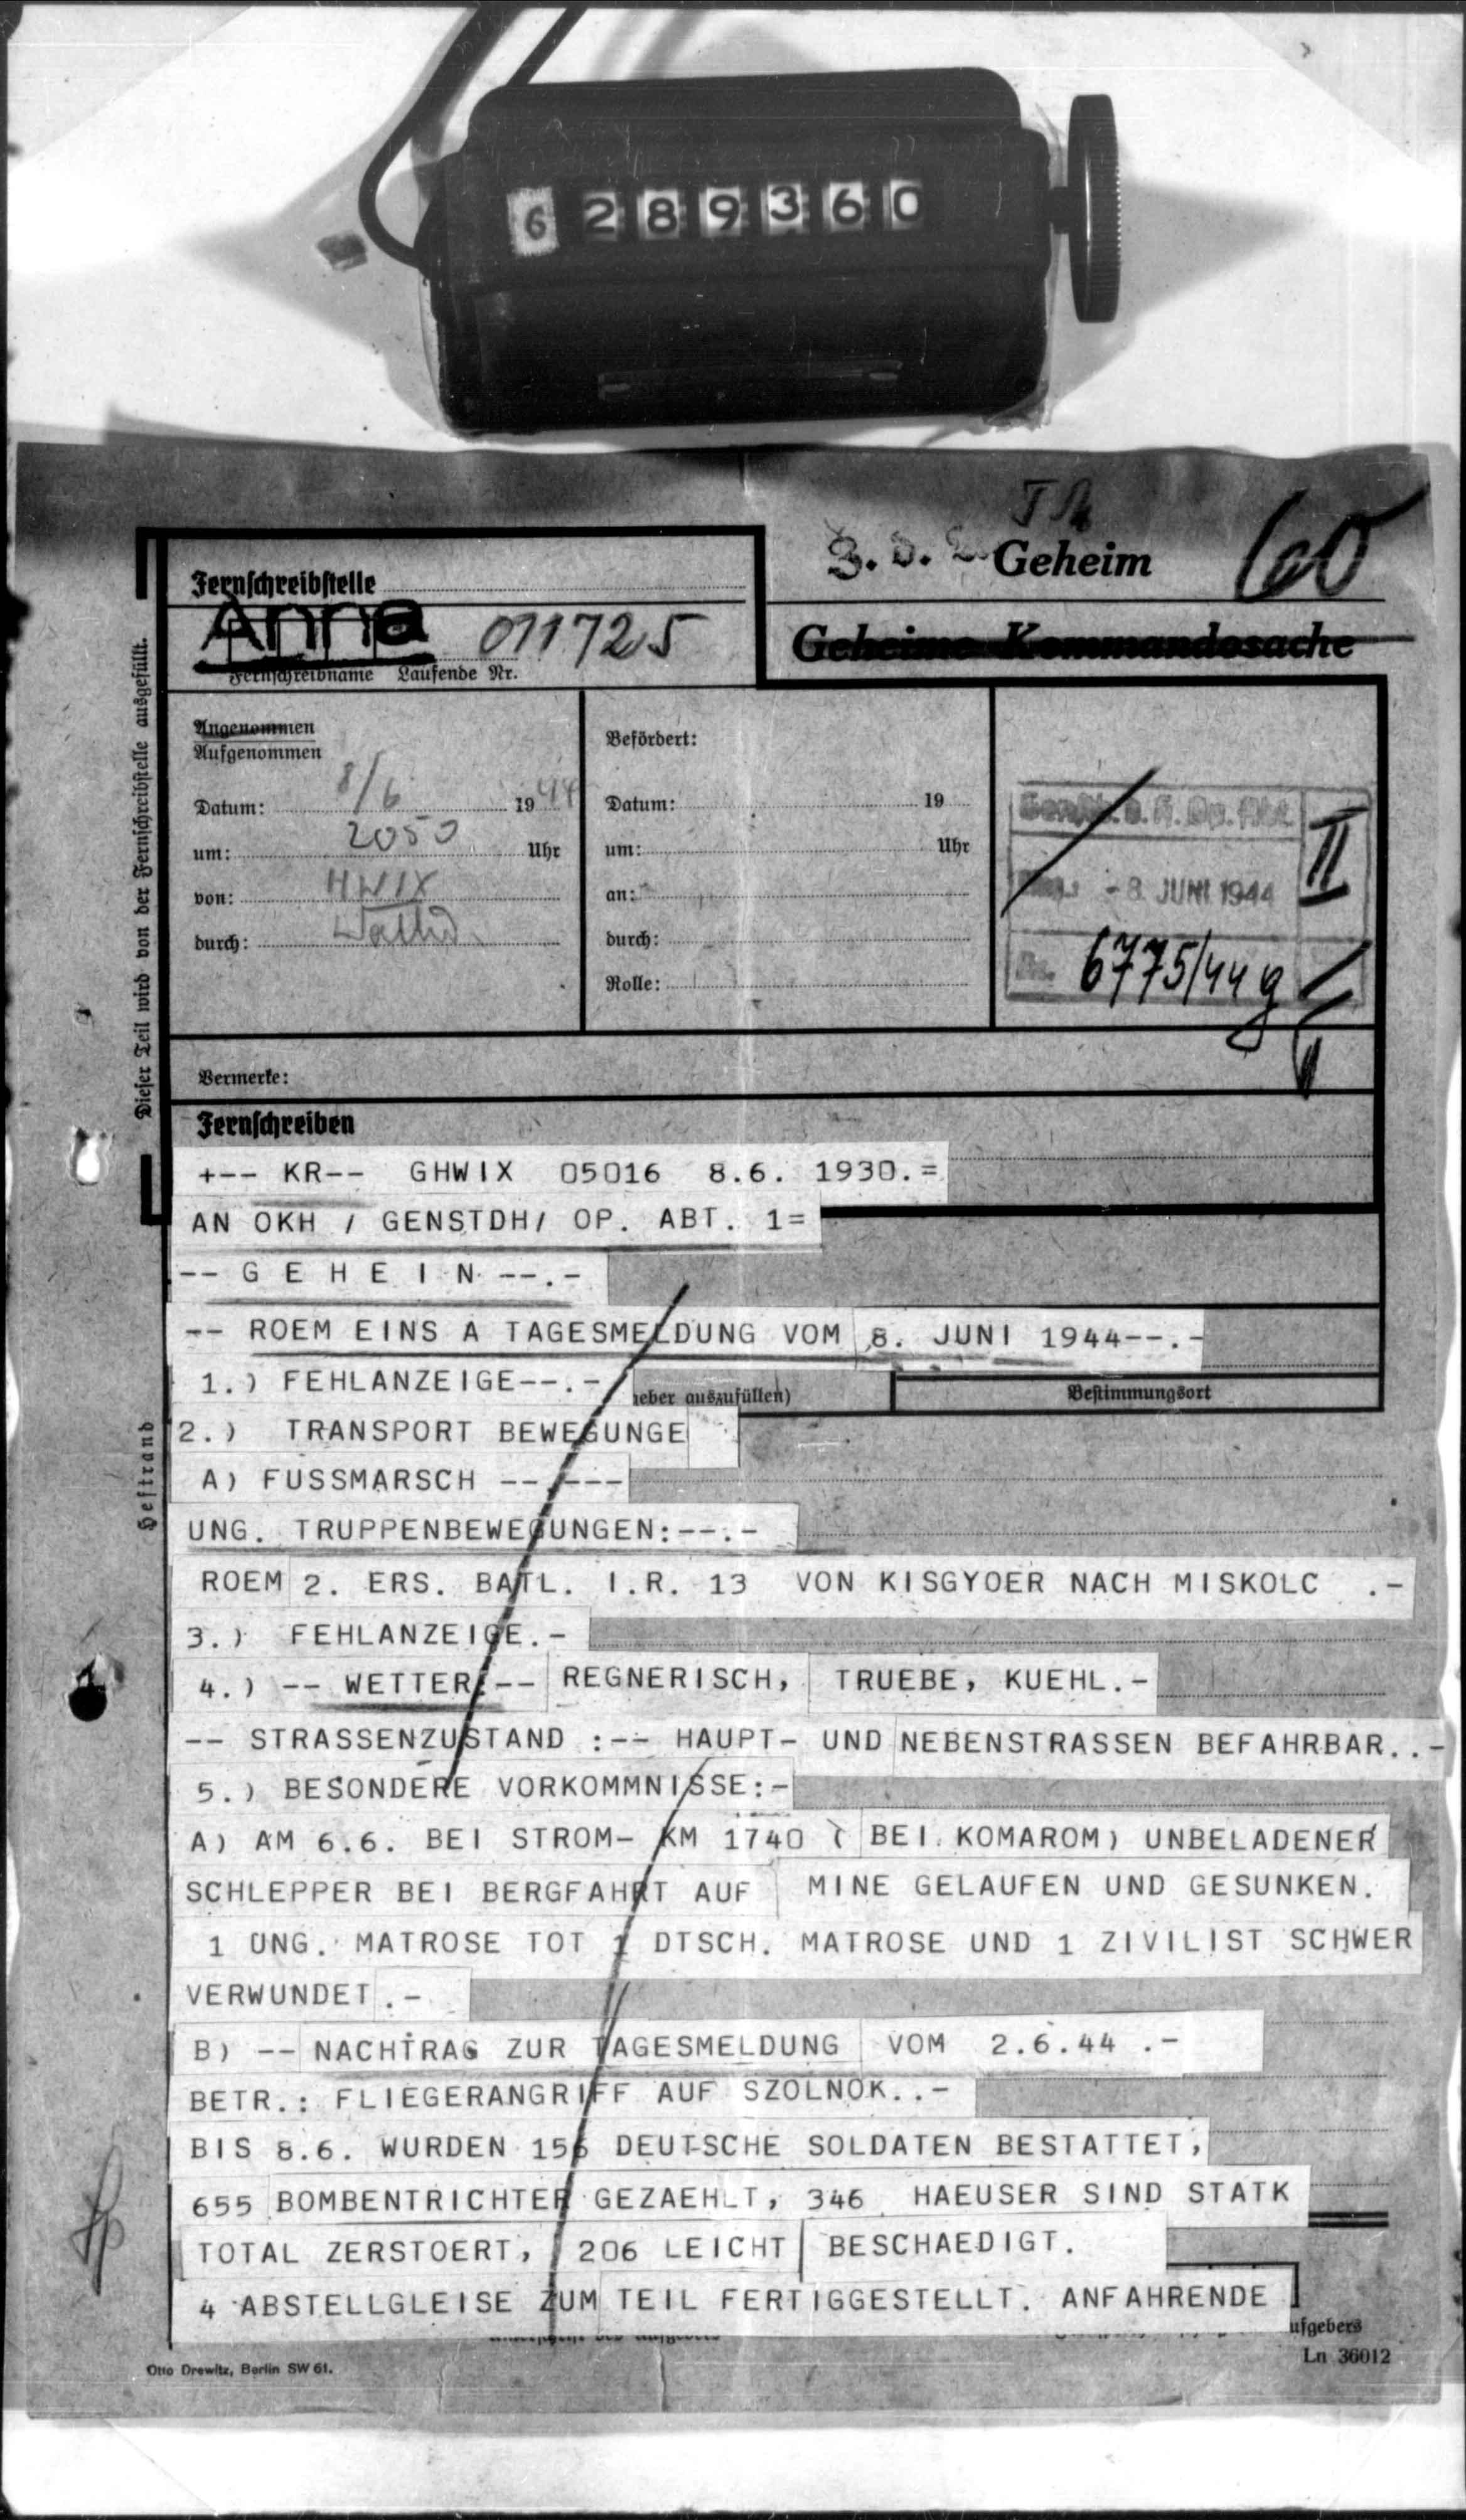 6 289360
Geheim
60
Geheime Kommandosache
Fernschreibstelle
Anna 011725
Fernschreibname Laufende Nr.
Dieser Teil wird von der Fernschreibstelle ausgefüllt.
Angenommen
Aufgenommen
Datum: 8/6 1944
um: 2050 Uhr
von: HWIX
durch:
Befördert:
Datum: 19
um: Uhr
an:
durch:
Rolle:
II
- 8. JUNI 1944
Nr. 6775/44 g
Vermerke:
Fernschreiben
+-- KR-- GHWIX 05016 8.6. 1930.=
AN OKH / GENSTDH/ OP. ABT. 1=
-- G E H E I N --.-
-- ROEM EINS A TAGESMELDUNG VOM 8. JUNI 1944--.-
1.) FEHLANZEIGE--.-
eber auszufüllen) Bestimmungsort
2.) TRANSPORT BEWEGUNGE
A) FUSSMARSCH -- ---
Heftrand
UNG. TRUPPENBEWEGUNGEN:--.-
ROEM 2. ERS. BATL. I.R. 13 VON KISGYOER NACH MISKOLC .-
3.) FEHLANZEIGE.-
4.) -- WETTER:-- REGNERISCH, TRUEBE, KUEHL.-
-- STRASSENZUSTAND :-- HAUPT- UND NEBENSTRASSEN BEFAHRBAR..-
5.) BESONDERE VORKOMMNISSE:-
A) AM 6.6. BEI STROM- KM 1740 ( BEI KOMAROM) UNBELADENER
SCHLEPPER BEI BERGFAHRT AUF MINE GELAUFEN UND GESUNKEN.
1 UNG. MATROSE TOT 1 DTSCH. MATROSE UND 1 ZIVILIST SCHWER
VERWUNDET .-
B) -- NACHTRAG ZUR TAGESMELDUNG VOM 2.6.44 .-
BETR.: FLIEGERANGRIFF AUF SZOLNOK..-
BIS 8.6. WURDEN 156 DEUTSCHE SOLDATEN BESTATTET,
655 BOMBENTRICHTER GEZAEHLT, 346 HAEUSER SIND STATK
TOTAL ZERSTOERT, 206 LEICHT BESCHAEDIGT.
4 ABSTELLGLEISE ZUM TEIL FERTIGGESTELLT. ANFAHRENDE
ufgebers
Otto Drewitz, Berlin SW 61.
Ln 36012